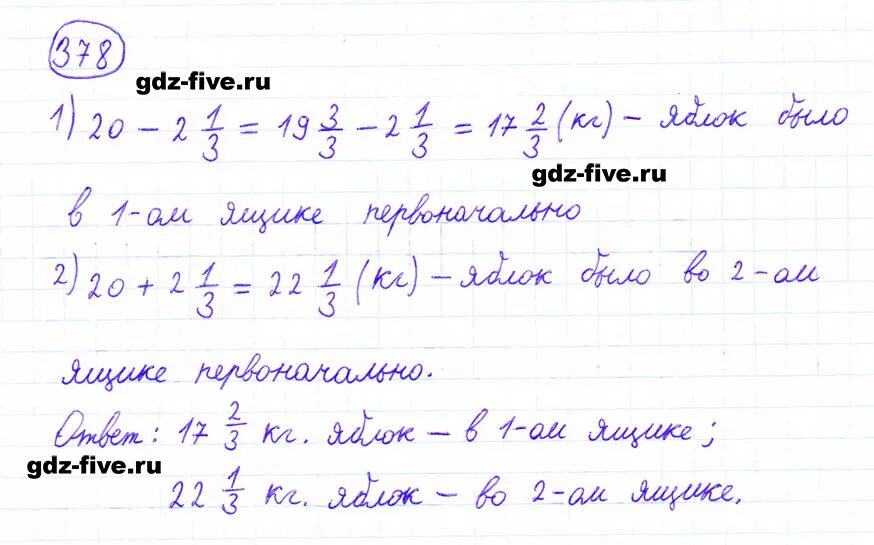 378
gdz-five.ru
1) 20 − 2 1/3 = 19 3/3 − 2 1/3 = 17 2/3 (кг) − яблок было
gdz-five.ru
в 1-ом ящике первоначально
2) 20 + 2 1/3 = 22 1/3 (кг) − яблок было во 2-ом
ящике первоначально.
Ответ: 17 2/3 кг. яблок − в 1-ом ящике;
gdz-five.ru
22 1/3 кг. яблок − во 2-ом ящике.